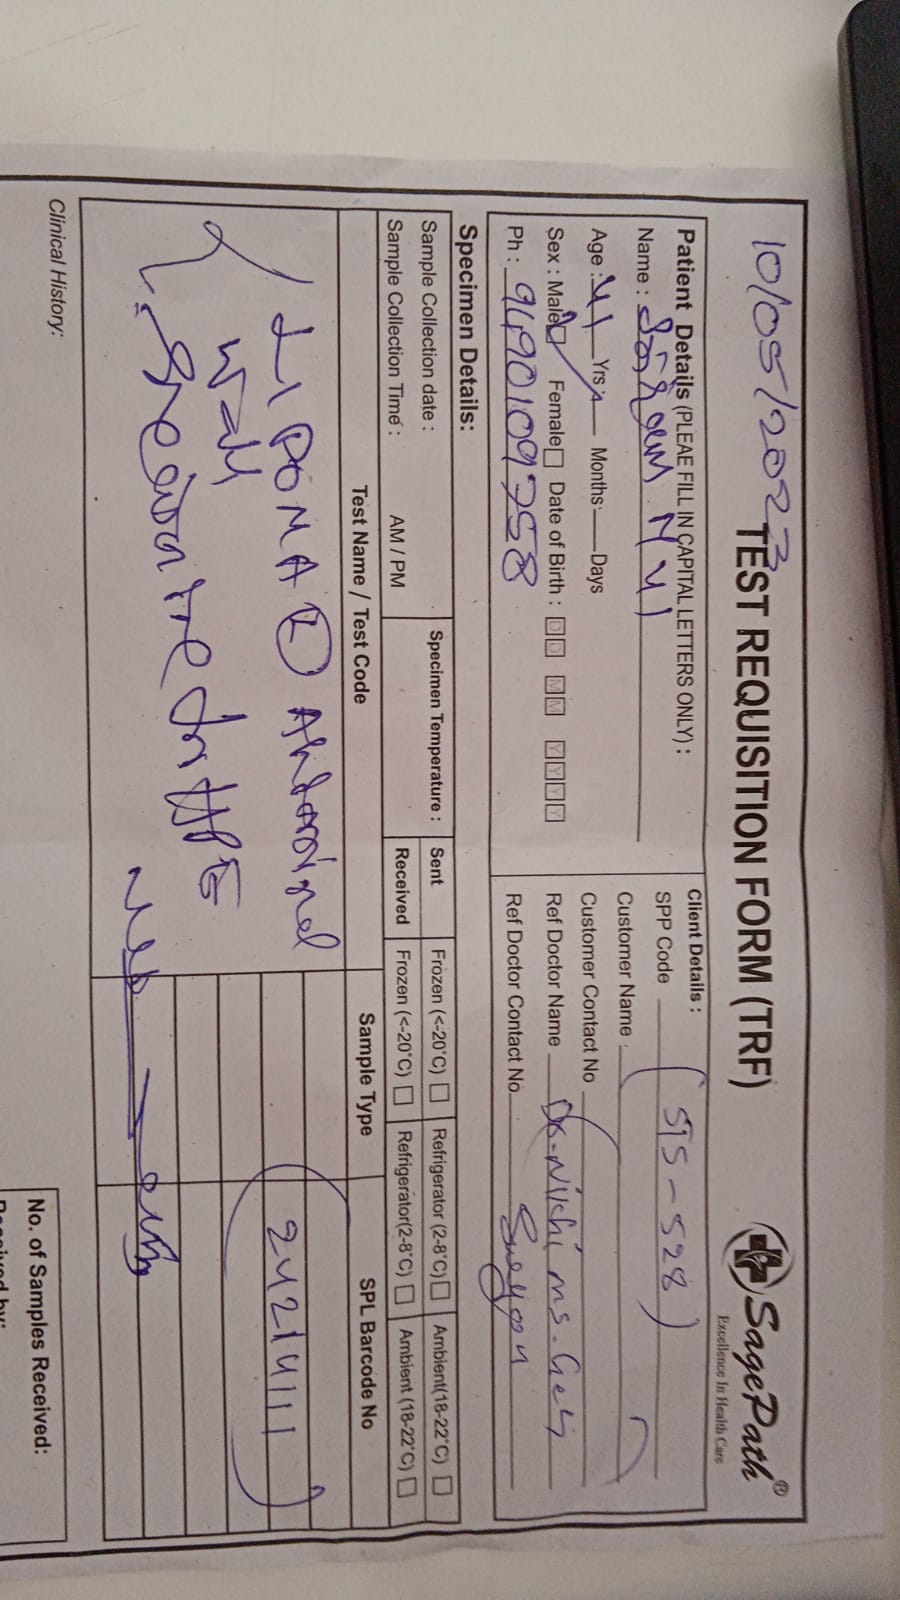 10/05/2023
TEST REQUISITION FORM (TRF)
SagePath®
Excellence In Health Care
Patient Details (PLEAE FILL IN CAPITAL LETTERS ONLY) :
Name :
Age : 41 Yrs Months: Days
Sex : Male Female Date of Birth : D D M M Y Y Y Y
Ph : 9490109758
Client Details :
SPP Code (STS-528)
Customer Name :
Customer Contact No
Ref Doctor Name
Ref Doctor Contact No.
Specimen Details:
Sample Collection date :
Sample Collection Time : AM / PM
Specimen Temperature :
Sent Frozen (<-20°C) Refrigerator (2-8°C) Ambient(18-22°C)
Received Frozen (<-20°C) Refrigerator(2-8°C) Ambient (18-22°C)
Test Name / Test Code Sample Type SPL Barcode No
LIPOMA Abdominal
Wall
24214111
Clinical History:
No. of Samples Received: